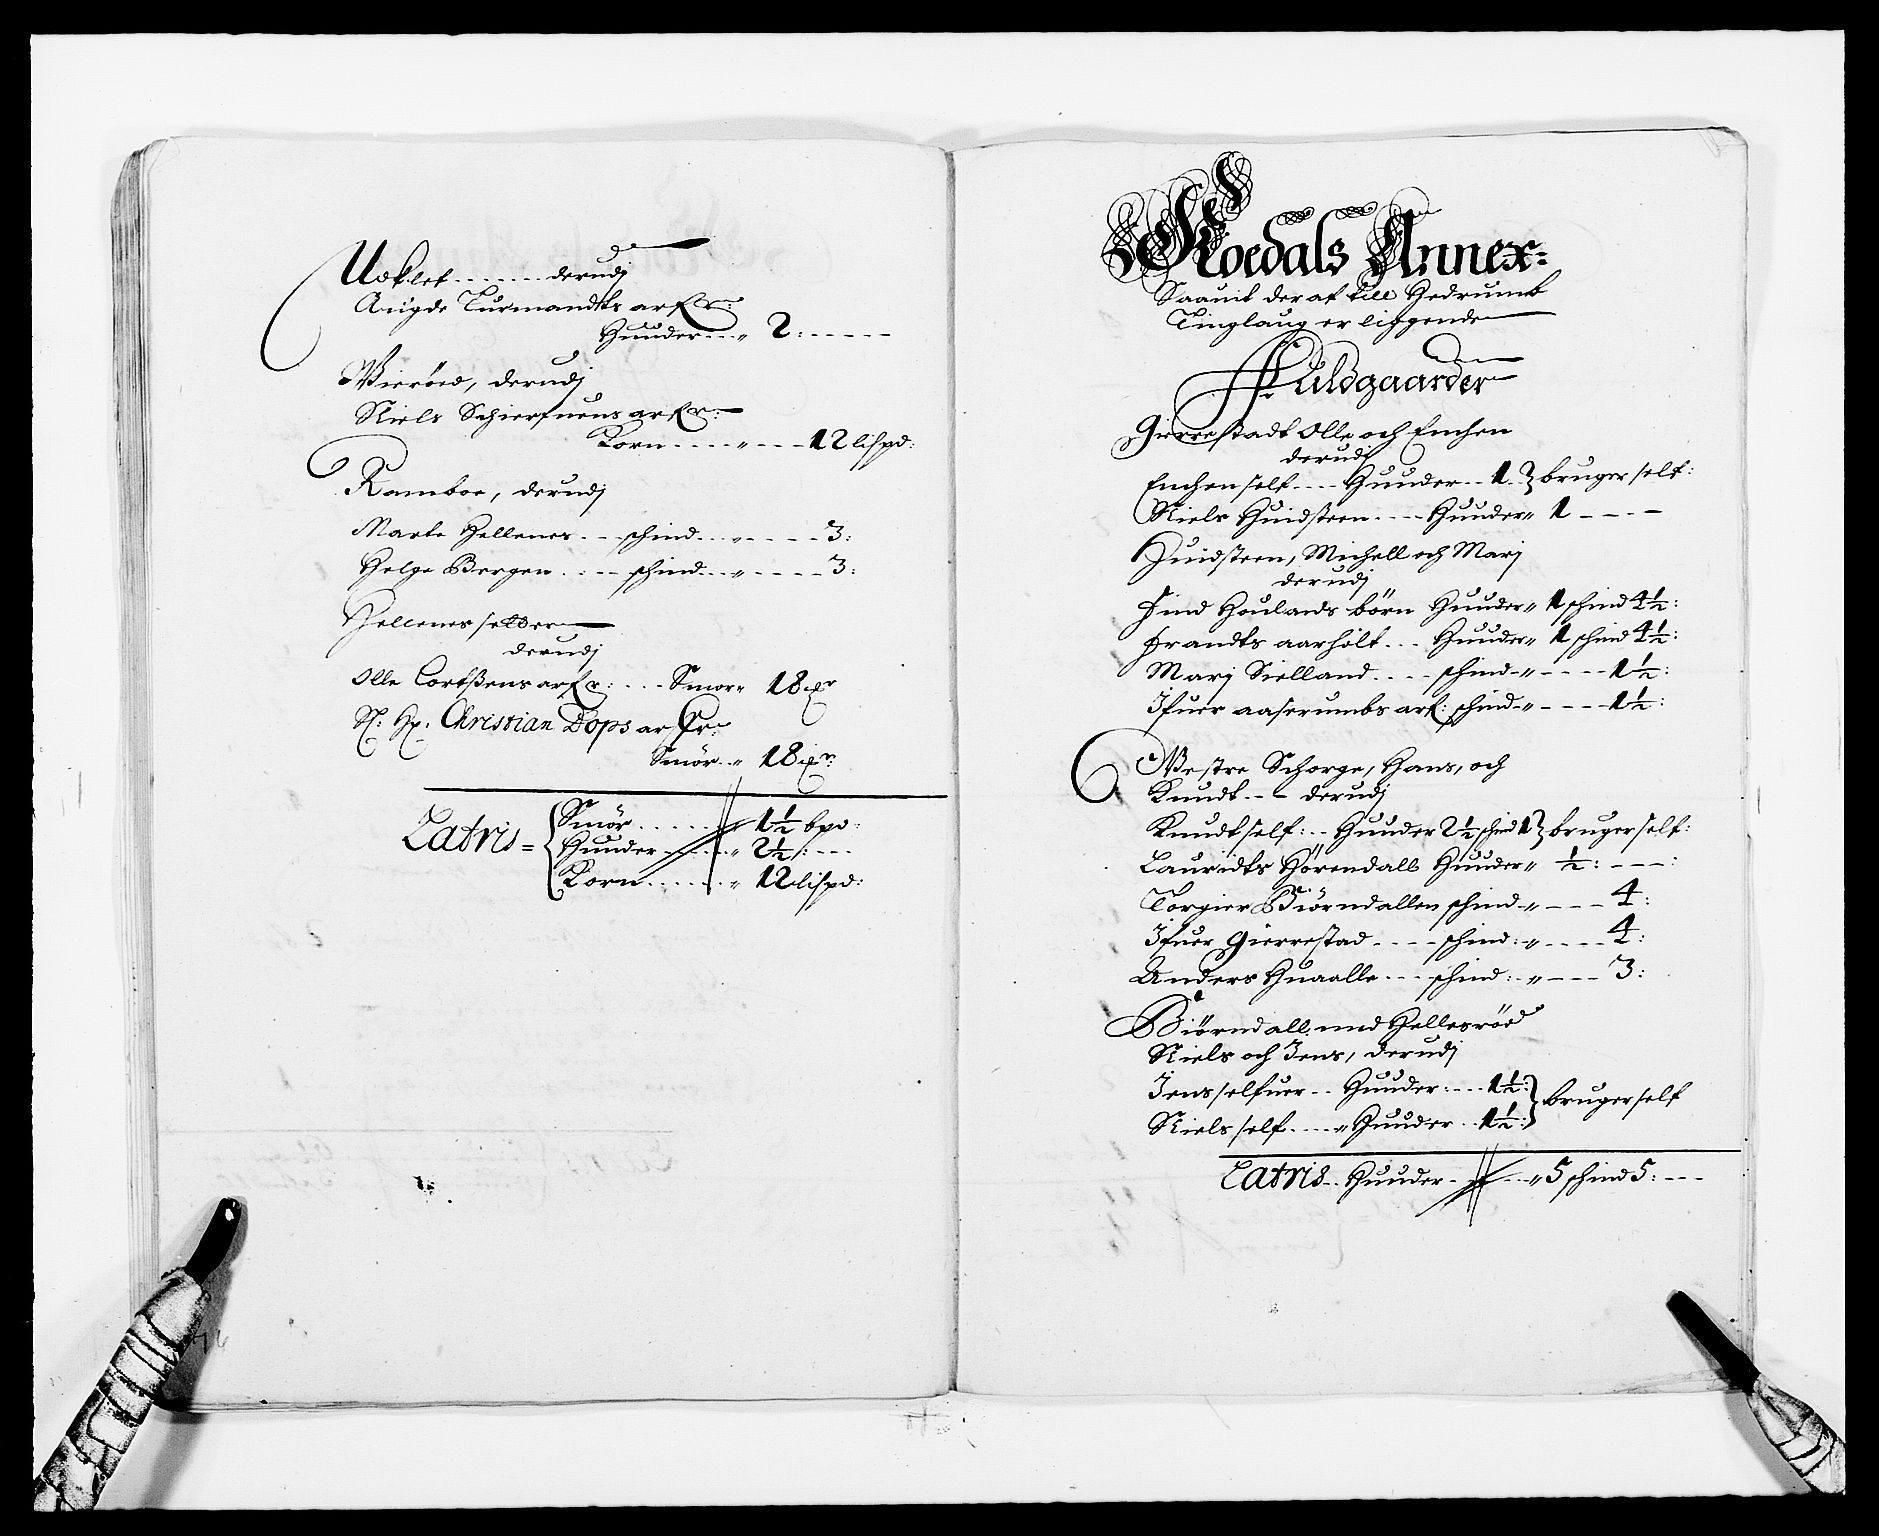 Ueklef ...... derudj
Aaigde Turmandtz arf:r:
Huuder ... „ 2: -----
Wieröed, derudj
Niels Schierfuens arf:r:
Korn .... „ --- 12 lispd:
Ramboe, derudj
Marte Hellenes --- schind .. „ ---- 3:
Helge Bergen .: -- schind .. „ ---- 3:
Hellenes selder
derudj
Olle Cortßens arf:r: ... Smør „ 18 xr
Sl: Hr: Christian Dops arf:r:
Smör .. „ 18 xr
Latris = Smör ...... „ 1½ bpd:
Huuder ------ „ 2½ :---
Korn ...... „ 12 lispd:
Quoedals Annex:
Saauit der af till Hedrumb
Tinglaug er liggende
Fuldgaarder
Gierrestadt Olle och Enchen
derudj
Enchen self .... Huuder .. 1. bruger self:
Niels Huidsteen .... Huuder „ 1 ----
Huidsteen, Michell och Marj
derudj
Find Houlands börn Huuder „ 1 schind 4½:
Frandts aarholt ... Huuder „ 1 schind 4½:
Marj Sielland .... schind „ ---- 1½:
Ifuer aaserumbs arf: schind „ ---- 1½:
Westre Schorge, Hans, och
Knudt --- derudj
Knudt self: .. Huuder 2½ schind 1 bruger self:
Lauridts Hörendall Huuder „ ½: ---:
Torgier Biörndallen schind „ --- 4:
Ifuer Gierrestad ---- schind: „ ---- 4:
Anders Huaalle ... schind: „ --- 3:
Biörndall med Hellesröed
Niels och Jens, derudj
Jens selfuer .. Huuder: --- 1½: bruger self
Niels self .... „ Huuder .. 1½:
Latris .. Huuder ---- „ 5 schind 5: ---